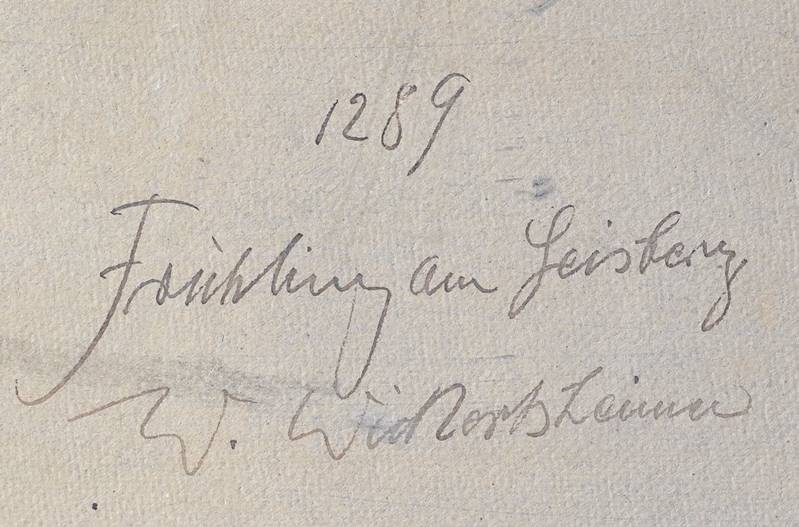 1289
Frühling am Geisberg
W. Wickertsheimer